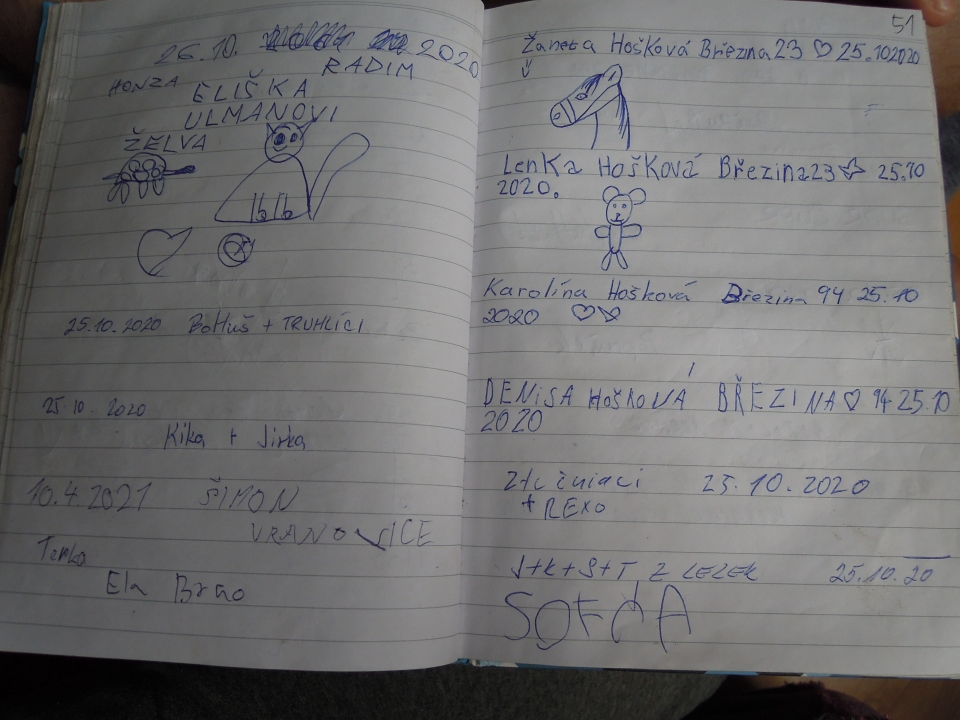 26.10. 2020
RADIM
HONZA
ELIŠKA
ULMANOVI
ŽELVA
25.10.2020 BOHUŠ + TRUHLÍCI
25.10.2020
Kika + Jirka
10.4.2021 ŠIMON
VRANOVICE
Terka
Ela
51
Žaneta Hošková Březina 23 ♡ 25.102020
Lenka Hošková Březina 23 25.10
2020.
Karolína Hošková Březina 94 25.10
2020 ♡
DENISA HoškovÁ BŘEZINA ♡ 94 25.10
2020
25.10.2020
+ REXO
J+K+S+T Z LELEK 25.10.20